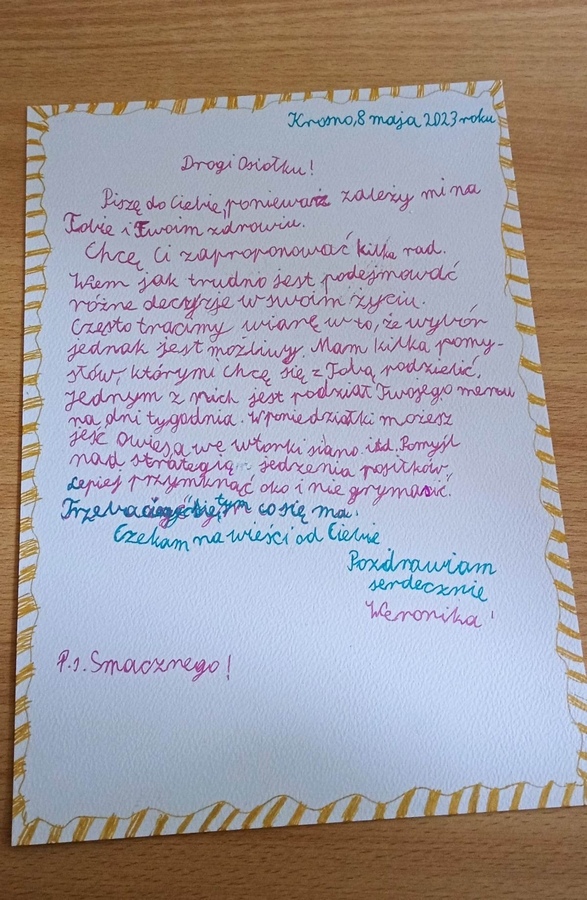 Krosno, 8 maja 2023 roku
Drogi Osiołku!
Piszę do Ciebie, ponieważ zależy mi na
Tobie i Twoim zdrowiu.
Chcę Ci zaproponować kilka rad.
Wiem jak trudno jest podejmować
różne decyzje w swoim życiu.
Często tracimy wiarę w to, że wybór
jednak jest możliwy. Mam kilka pomy-
słów, którymi chcę się z Tobą podzielić.
Jednym z nich jest podział Twojego menu
na dni tygodnia. W poniedziałki możesz
jeść owiesa we wtorki siano. itd. Pomyśl
nad strategią jedzenia posiłków.
Lepiej przymknąć oko i nie grymasić.
Trzeba cieszyć się tym co się ma.
Czekam na wieści od Ciebie
Pozdrawiam
serdecznie
Weronika
P.s. Smacznego!